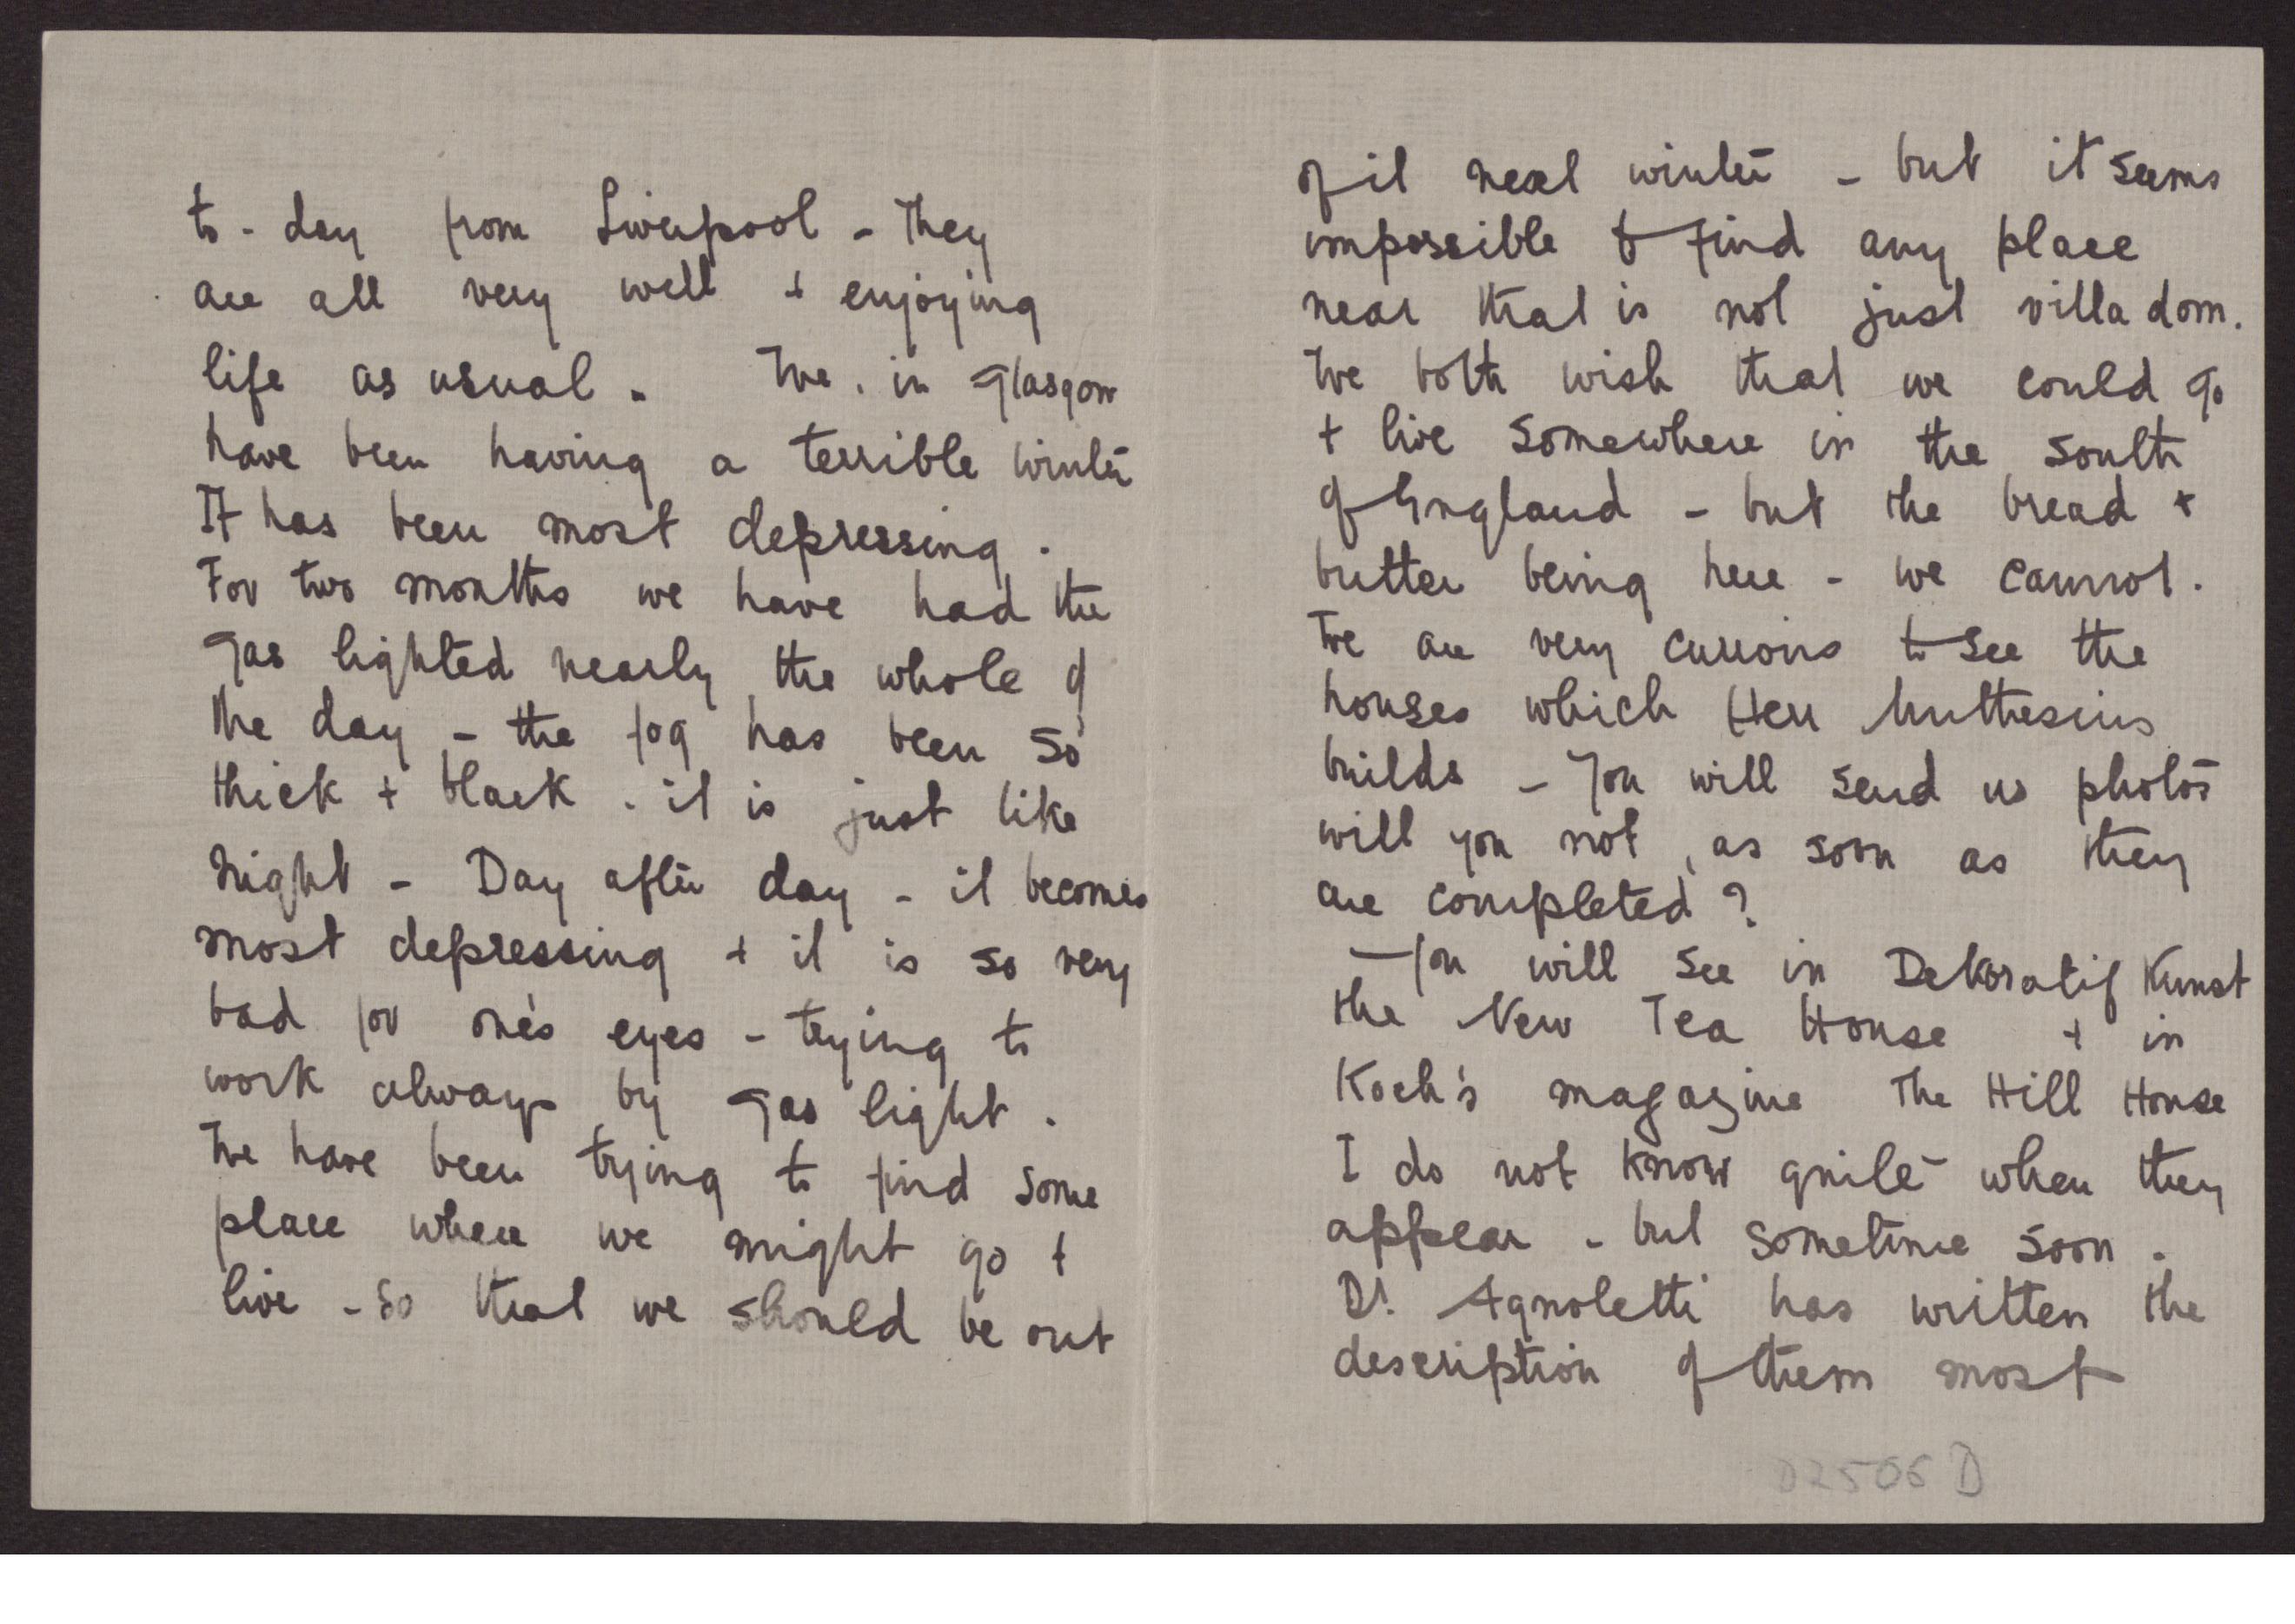 to-day from Liverpool - They
are all very well + enjoying
life as usual. We, in Glasgow
have been having a terrible winter
It has been most depressing.
For two months we have had the
gas lighted nearly the whole of
the day - the fog has been so
thick + black - it is just like
night - Day after day - it becomes
most depressing + it is so very
bad for one's eyes - trying to
work always by gas light.
We have been trying to find some
place where we might go +
live - so that we should be out
of it next winter - but it seems
impossible to find any place
near that is not just villadom.
We both wish that we could go
+ live somewhere in the South
of England - but the bread +
butter being here - we cannot.
We are very curious to see the
houses which Herr Muthesius
builds - You will send us photos
will you not, as soon as they
are completed?
— You will see in Dekoratif Kunst
the New Tea House + in
Koch's magazine The Hill House
I do not know quite when they
appear - but sometime soon.
Dr. Agnoletti has written the
description of them most
D2506 D